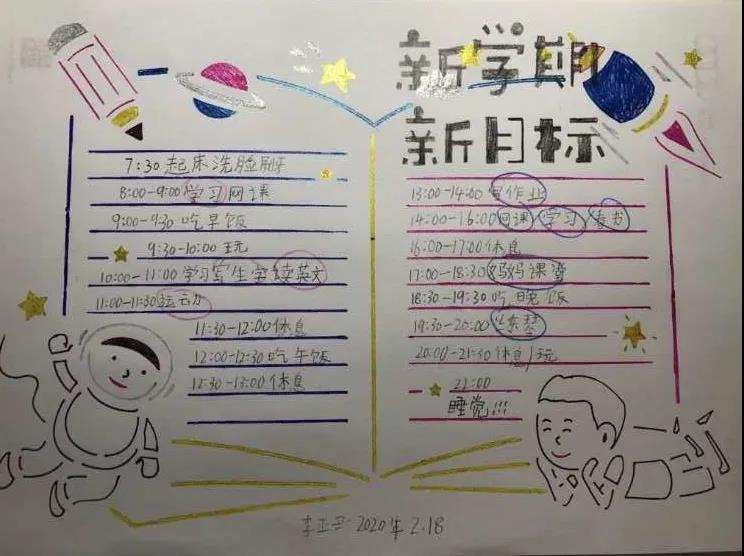 新学期
新目标
7:30起床洗脸刷牙
8:00-9:00学习网课
9:00-9:30吃早饭
9:30-10:00玩
10:00-11:00学习写生字读英文
11:00-11:30运动
11:30-12:00休息
12:00-12:30吃午饭
12:30-13:00休息
13:00-14:00写作业
14:00-16:00网课学习读书
16:00-17:00休息
17:00-18:30妈妈课堂
18:30-19:30吃晚饭
19:30-20:00练琴
20:00-21:30休息/玩
21:00
睡觉!!!
2020年2.18